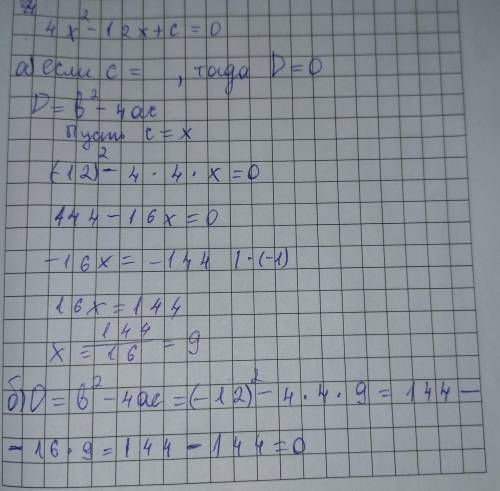 4x² - 12x + c = 0
а) если c =    , тогда D = 0
D = b² - 4ac
Пусть c = x
(-12)² - 4 · 4 · x = 0
144 - 16x = 0
-16x = -144 | · (-1)
16x = 144
x = 144/16 = 9
б) D = b² - 4ac = (-12)² - 4 · 4 · 9 = 144 -
- 16 · 9 = 144 - 144 = 0